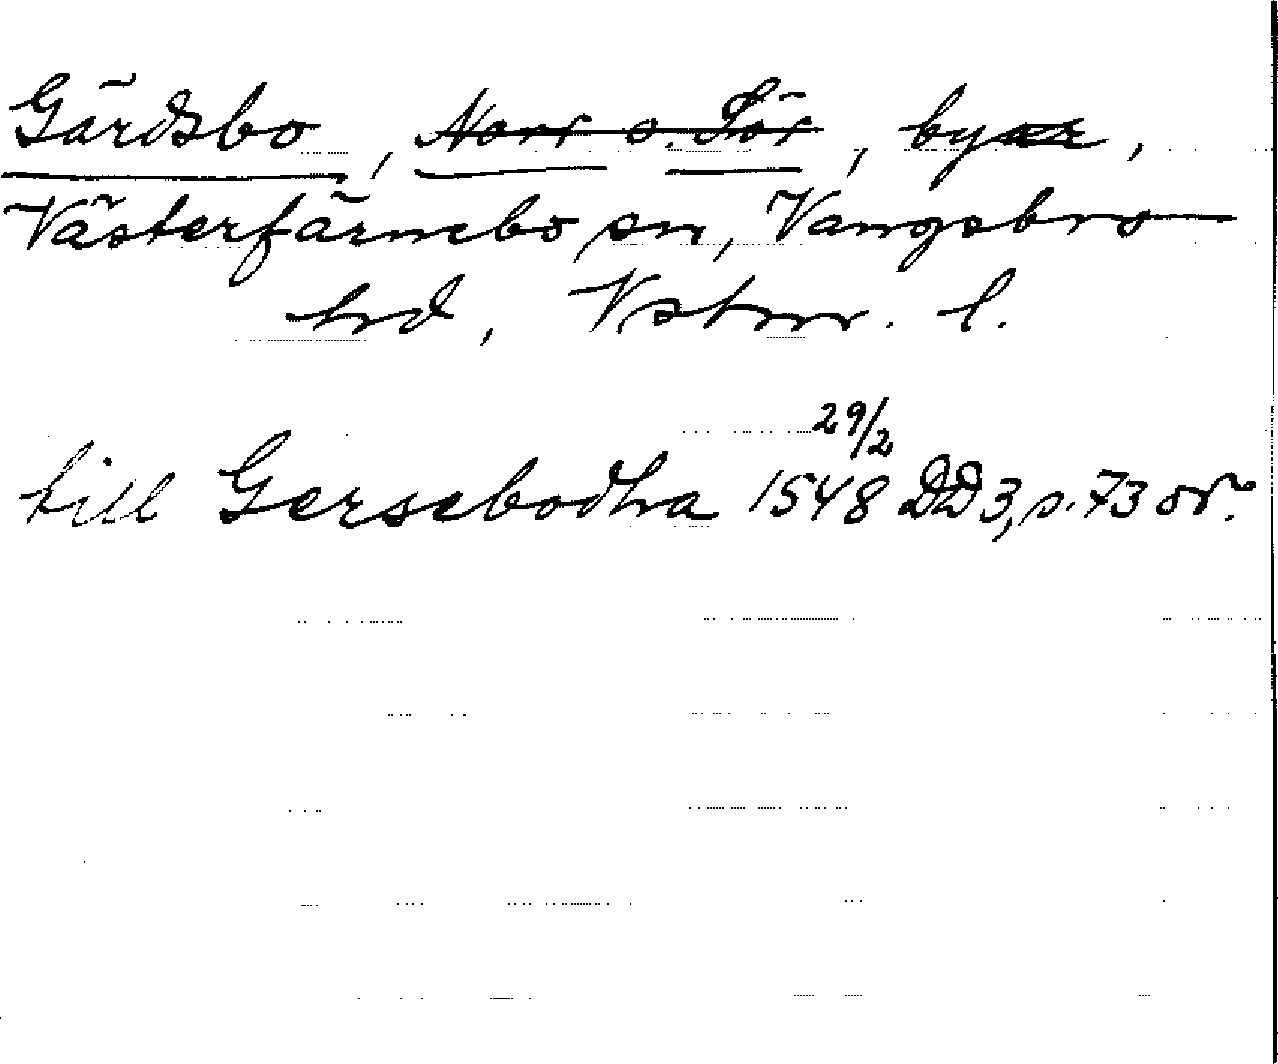 Gärdsbo, Norr o. Sör, byar,
Västerfärnebo sn, Vangsbro
hd, Vstm. l.
till Gersebodha 29/2 1548 DD3, s. 73 or.